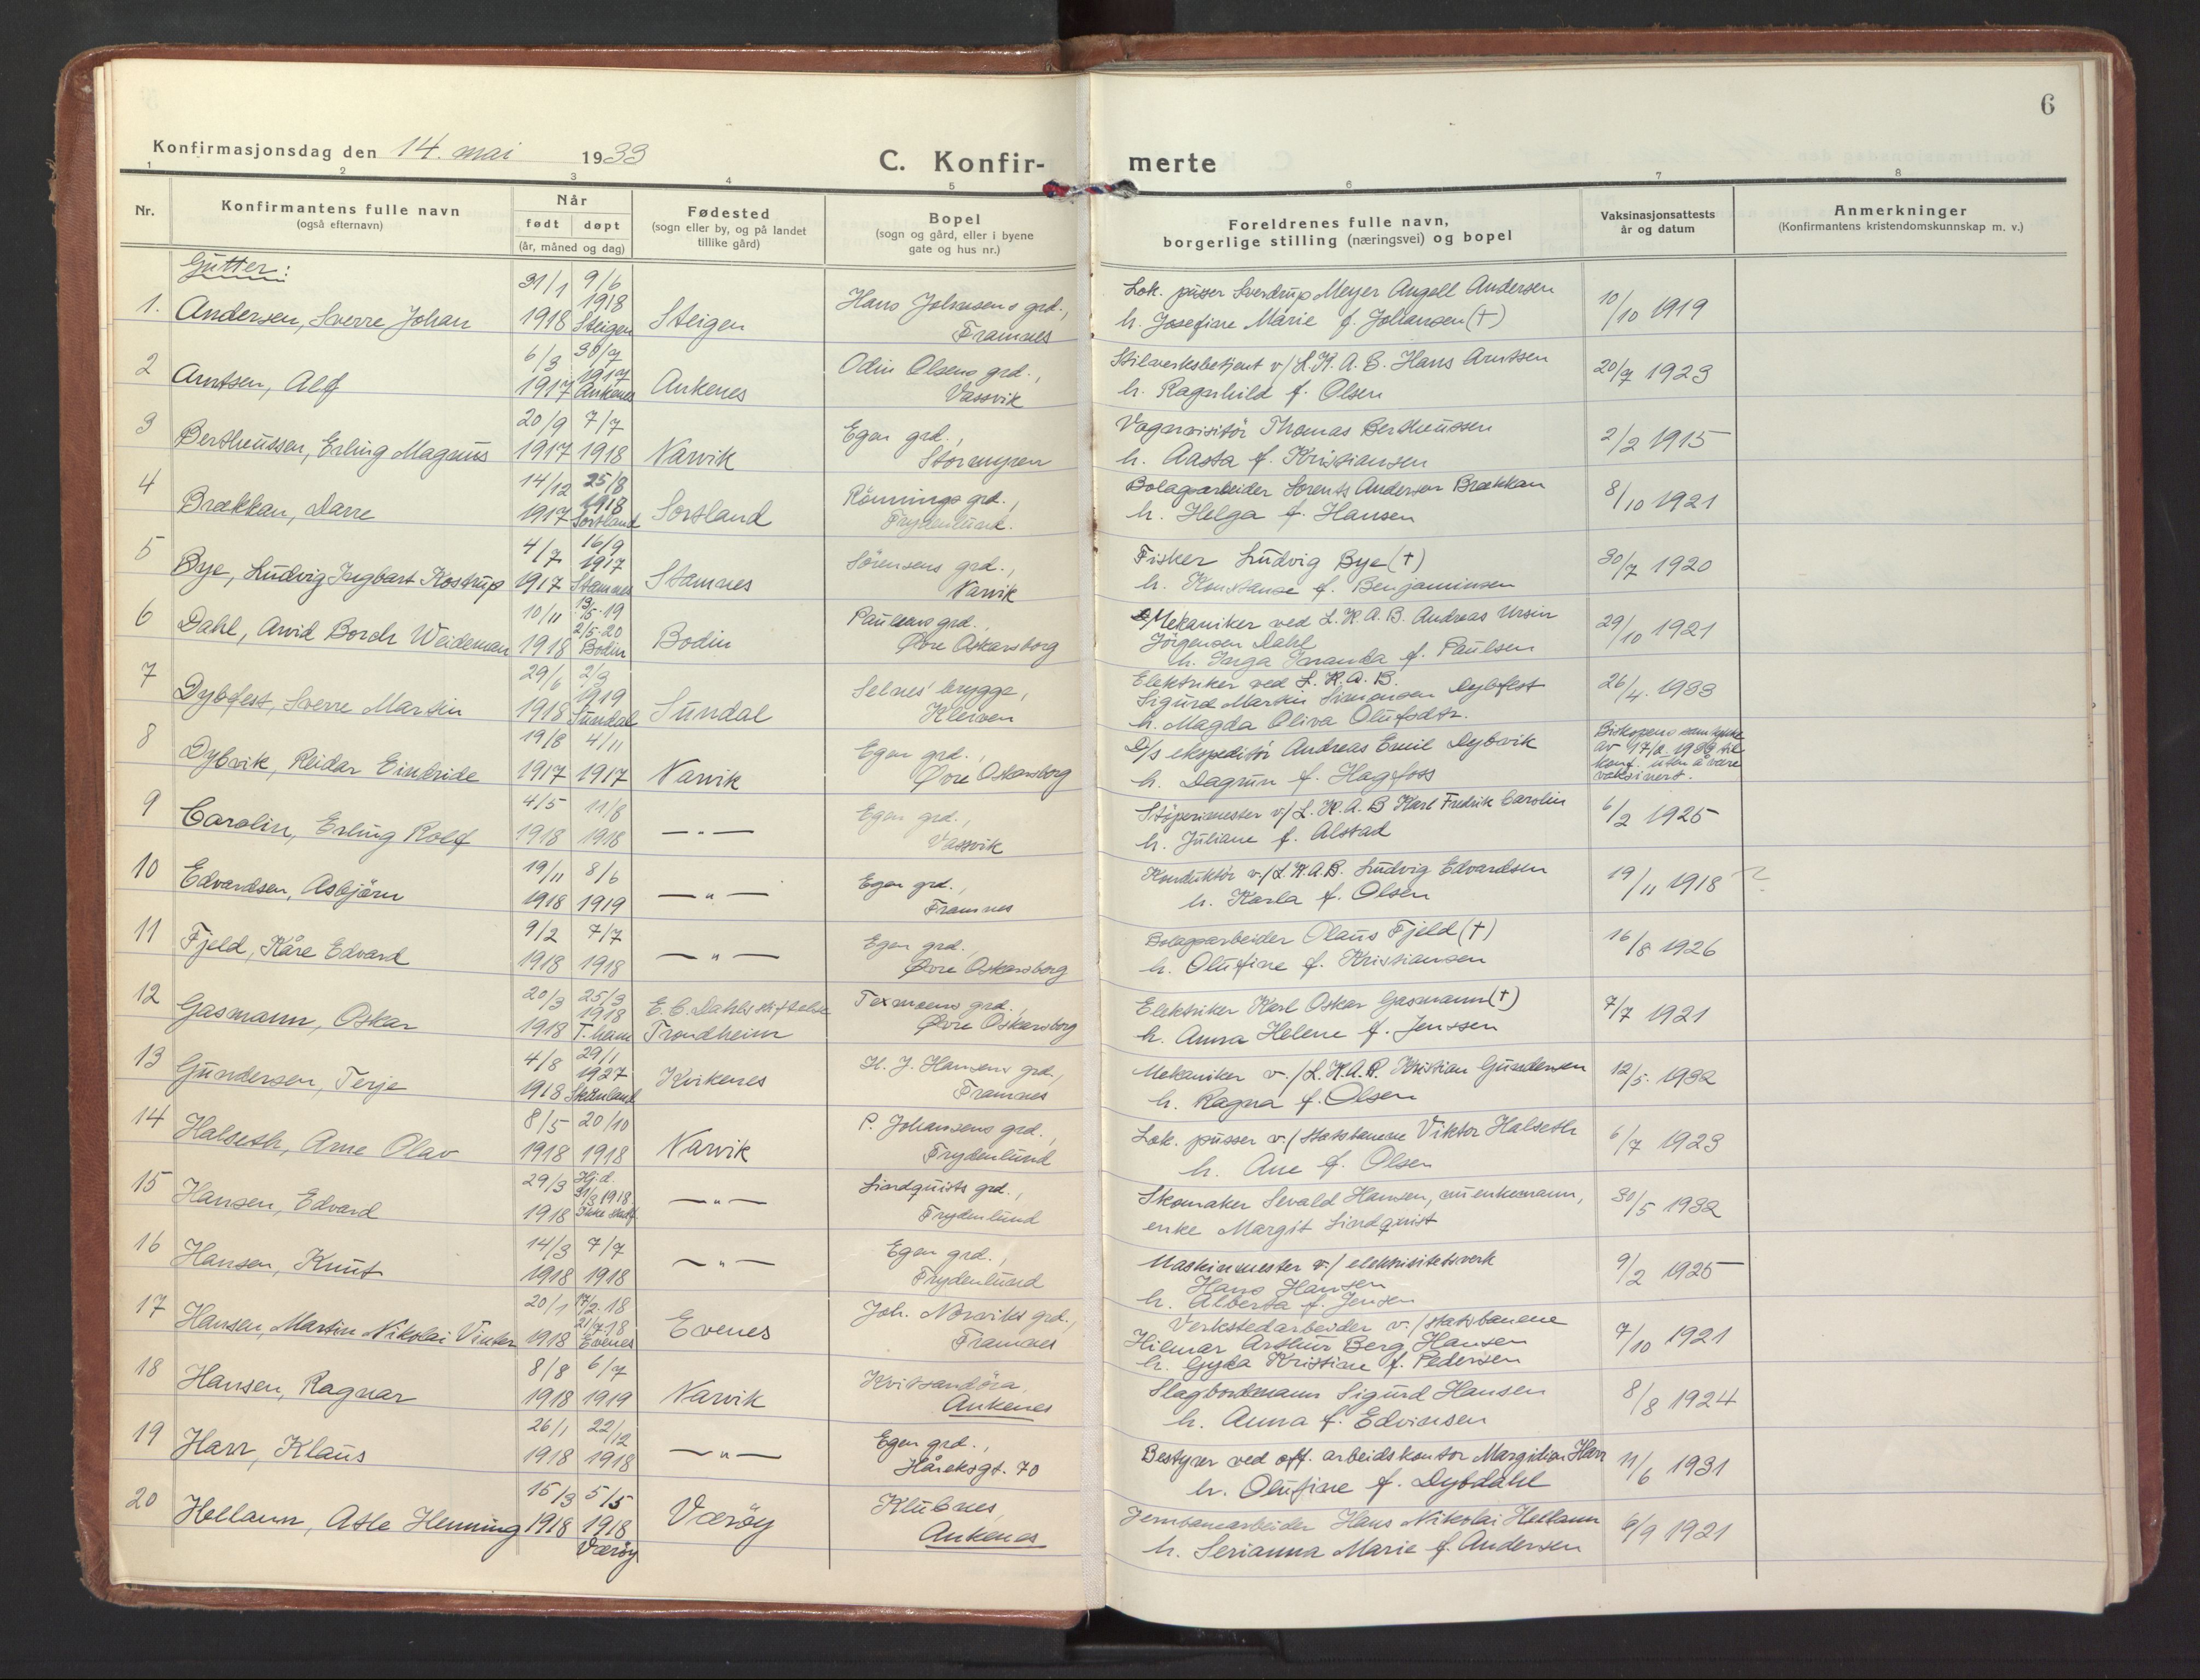 6
Konfirmasjonsdag den 14. mai 1933
C. Konfir- merte
1 2 3 4 5 6 7 8
Nr.
Konfirmantens fulle navn
(også efternavn)
Når
født døpt
(år, måned og dag)
Fødested
(sogn eller by, og på landet
tillike gård)
Bopel
(sogn og gård, eller i byene
gate og hus nr.)
Foreldrenes fulle navn,
borgerlige stilling (næringsvei) og bopel
Vaksinasjonsattests
år og datum
Anmerkninger
(Konfirmantens kristendomskunnskap m. v.)
Gutter:
1. Andersen, Sverre Johan
31/1 1918
9/6 1918 Steigen
Steigen
Hans Johnsens grd.,
Framnes
Lok. pusser Sverdrup Meyer Angell Andersen
h. Josefine Marie f. Johansen (†)
10/10 1919
2 Arntsen, Alf
6/3 1917
30/7 1917 Ankenes
Ankenes
Odin Olsens grd.,
Vassvik
h. Ragnhild f. Olsen
20/7 1923
3 Bertheussen, Erling Magnus
20/9 1917
7/7 1918
Narvik
Egen grd.,
Storengen
Vognvisitör Thomas Bertheussen
h. Aasta f. Kristiansen
2/2 1915
4 Brækkan, Darre
14/12 1917
25/8 1918 Sortland
Sortland
Rönnings grd.,
Frydenlund.
Bolagsarbeider Lorents Andersen Brækkan
h. Helga f. Hansen
8/10 1921
5 Bye, Ludvig Ingbart Kostrup
4/7 1917
16/9 1917 Stamnes
Stamnes
Sörensens grd.,
Narvik
Fisker Ludvig Bye (†)
h. Konstanse f. Benjaminsen
30/7 1920
6 Dahl, Arvid Borch Weideman
10/11 1918
13/5-19
2/5-20
Bodin
Bodin
Paulsens grd.,
Øvre Oskarsborg
Mekaniker ved L.K.A.B. Andreas Ursin
Jörgensen Dahl
h. Inga Iranda f. Paulsen
29/10 1921
7 Dybfest, Sverre Martin
29/6 1918
2/3 1919 Sundal
Sundal
Selnes' brygge,
Kleiven
Elektriker ved L.K.A.B.
Sigurd Martin Simonsen Dybfest
h. Magda Oliva Olufsdtr.
26/4. 1933
8 Dybvik, Reidar Eindride
19/8 1917
4/11 1917
Narvik
Egen grd.,
Øvre Oskarsborg
D/s ekspeditör Andreas Emil Dybvik
h. Dagrun f. Hagfoss
Biskopens samtykke
av 17/2. 1933 til
konf. uten å være
vaksinert.
9 Carolin, Erling Rolf
4/5 1918
11/8 1918
— " —
Egen grd.,
Vassvik
Stöperimester v/ L.K.A.B Karl Fredrik Carolin
h. Juliane f. Alstad
6/2 1925
10 Edvardsen, Asbjörn
19/11 1918
8/6 1919
— " —
Egen grd.,
Framnes
Konduktör v./L.K.A.B. Ludvig Edvardsen
h. Karla f. Olsen
19/11 1918 ?
11 Fjeld, Kåre Edvard
9/2 1918
7/7 1918
— " —
Egen grd.
Øvre Oskarsborg
Bolagsarbeider Olaus Fjeld (†)
h. Olufine f. Kristiansen
16/8 1926
12 Gasmann, Oskar
20/3 1918
25/3 1918 T.heim
E.C. Dahls stiftelse
Trondheim
Texmoens grd.,
Øvre Oskarsborg
Elektriker Karl Oskar Gasmann (†)
h. Anna Helene f. Jenssen
7/7 1921
13 Gundersen, Terje
4/8 1918
29/1 1927 Skånland
Kirkenes
H. J. Hansens grd.,
Framnes
Mekaniker v./L.K.A.B. Kristian Gundersen
h. Ragna f. Olsen
12/5. 1932
14 Halseth, Arne Olav
8/5 1918
20/10 1918
Narvik
P. Johansens grd.,
Frydenlund
Lok. pusser v./statsbanene Viktor Halseth
h. Ane f. Olsen
6/7 1923
15 Hansen, Edvard
29/3 1918
Hj.d.
31/3 1918.
Ikke stadf.
— " —
Lindquists grd.,
Frydenlund
Skomaker Sevald Hansen, nu enkemann,
enke Margit Lindquist
30/5 1932
16 Hansen, Knut
14/3 1918
7/7 1918
— " —
Egen grd.,
Frydenlund
Maskinmester v./ elektrisitetsverk
Hans Hansen
h. Alberta f. Jensen
9/2 1925
17 Hansen, Martin Nikolai Vinter
20/1 1918
17/2.18
21/7.18
Evenes
Evenes
Joh. Norviks grd.,
Framnes
Verkstedarbeider v./statsbanene
Hilmar Arthur Berg Hansen
h. Gyda Kristine f. Pedersen
7/10 1921
18 Hansen, Ragnar
8/8 1918
6/7 1919
Narvik
Kvitsandöra,
Ankenes
Slagbordmann Sigurd Hansen
h. Anna f. Edvinsen
8/8 1924
19 Harr, Klaus
26/1 1918
22/12 1918
— " —
Egen grd.,
Håreksgt. 70
Bestyrer ved off. arbeidskontor Margidion Harr
h. Olufine f. Dybdahl
11/6 1931
20 Hellann, Atle Henning
15/3 1918
5/5 1918 Værøy
Værøy
Klubnes,
Ankenes
Jernbanearbeider Hans Nikolai Hellann
h. Serianna Marie f. Andersen
6/9 1921